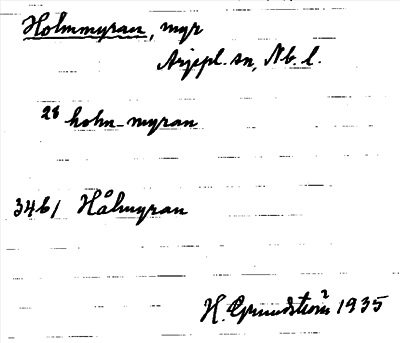 Holmmyran, myr
Arjepl. sn, Nb. l.
28 holm-myran
3461 Hålmyran
H. Grundström 1935